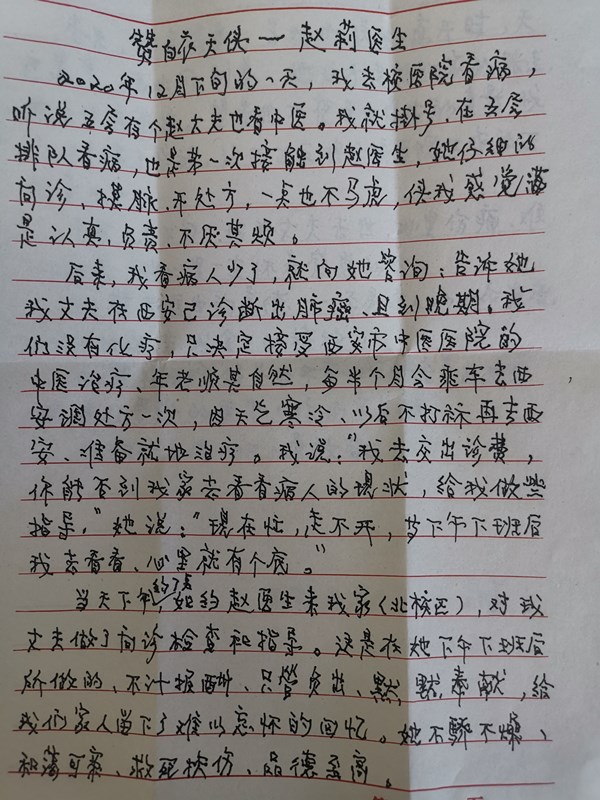 赞白衣天使一赵莉医生
2020年12月下旬的一天,我去校医院看病,
听说五层有个赵大夫也看中医。我就掛号,在五层
排队看病,也是第一次接触到赵医生,她仔细的
问诊、摸脉、开处方,一点也不马虎,使我感觉满
是认真,负责,不厌其烦。
后来,我看病人少了,就向她咨询:告诉她
我丈夫在西安已诊断出肺癌、且到晚期。我
们没有化疗,只决定接受西安市中医医院的
中医治疗、年老顺其自然,每半个月会乘车去西
安调处方一次,因天气寒冷、以后不打祘再去西
安、准备就地治疗。我说:"我去交出诊费,
你能否到我家去看看病人的现状,给我做些
指导。"她说:"现在忙,走不开,等下午下班后
我去看看、心里就有个底。"
当天下午约了点如约赵医生来我家(北校区),对我
丈夫做了问诊检查和指导。这是在她下午下班后
所做的、不计报酬、只管负出、默默奉献,给
我们家人留下了难以忘怀的回忆。她不骄不燥、
和蔼可亲、救死扶伤、品德至高。